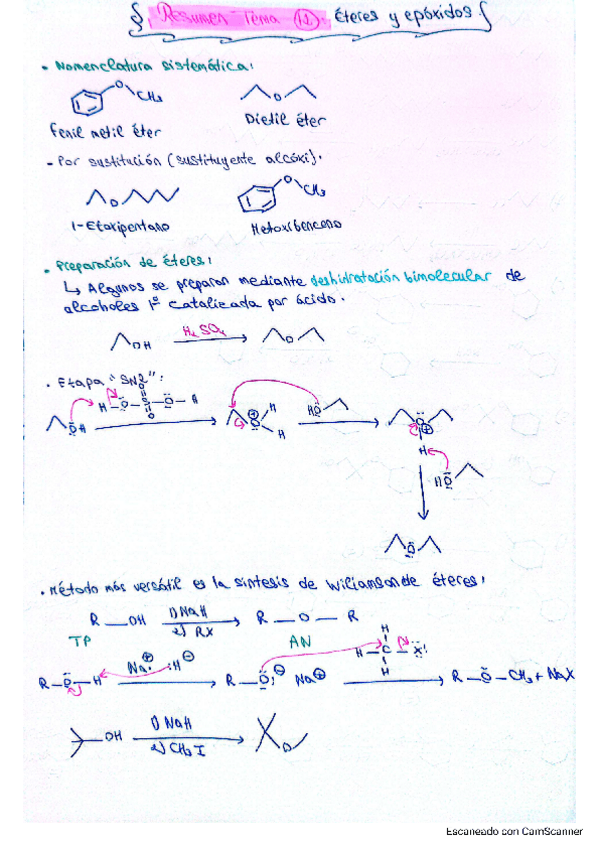 §. Resumen Tema 12: Éteres y epóxidos §
• Nomenclatura sistemática:
O CH3
O
Fenil metil éter
Dietil éter
- Por sustitución (sustituyente alcóxi).
O
O CH3
1-Etoxipentano
Metoxibenceno
• Preparación de éteres:
↳ Algunos se preparan mediante deshidratación bimolecular de
alcoholes 1º catalizada por ácido.
OH
H2SO4
O
• Etapa "SN2":
H-O-S-O-H
O
O
OH
O H
H
HO
O
H
HO
O
• Método más versátil es la síntesis de Wiliamson de éteres:
R — OH 1) NaH R — O — R
2) RX
TP
AN
R — O — H Na⊕ :H⊖ R — O:⊖ Na⊕ H — C — X: R — O — CH3 + NaX
H
H
OH 1) NaH O
2) CH3I
Escaneado con CamScanner